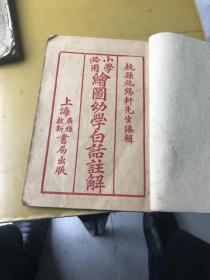 杭縣施錫軒先生編輯
小學必用
繪圖幼學白話註解
上海廣雅啟新書局出版